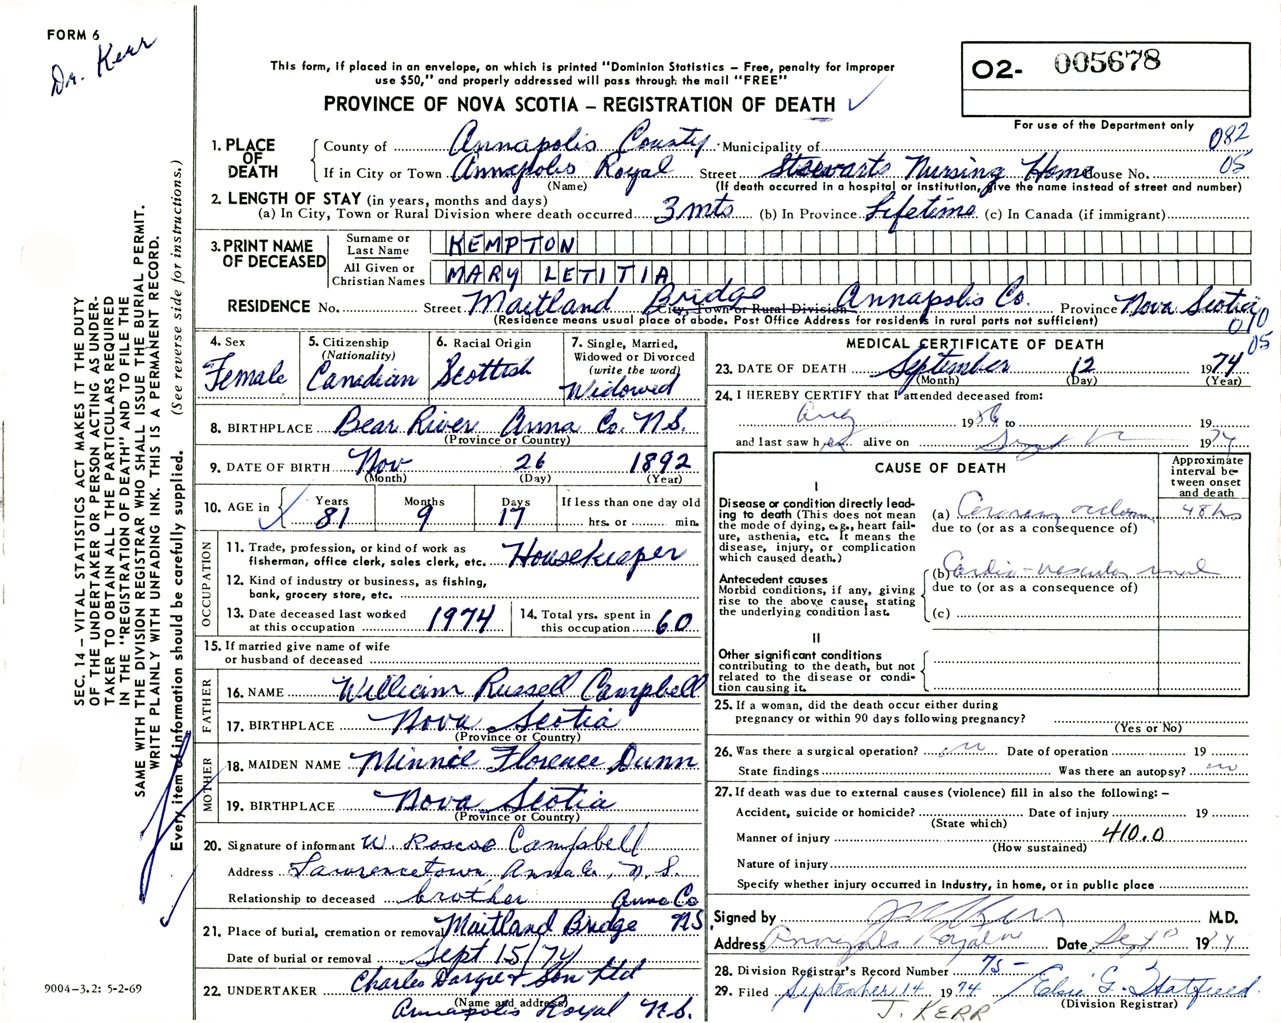 FORM 6
Dr. Kerr
This form, if placed in an envelope, on which is printed "Dominion Statistics – Free, penalty for improper
use $50," and properly addressed will pass through the mail "FREE"
PROVINCE OF NOVA SCOTIA – REGISTRATION OF DEATH
O2- 005678
For use of the Department only
082
05
SEC. 14 – VITAL STATISTICS ACT MAKES IT THE DUTY
OF THE UNDERTAKER OR PERSON ACTING AS UNDER-
TAKER TO OBTAIN ALL THE PARTICULARS REQUIRED
IN THE "REGISTRATION OF DEATH" AND TO FILE THE
SAME WITH THE DIVISION REGISTRAR WHO SHALL ISSUE THE BURIAL PERMIT.
WRITE PLAINLY WITH UNFADING INK. THIS IS A PERMANENT RECORD.
Every item of information should be carefully supplied. (See reverse side for instructions.)
1. PLACE OF DEATH County of Annapolis County Municipality of
If in City or Town Annapolis Royal Street Stewarts Nursing Home House No.
(Name) (If death occurred in a hospital or institution, give the name instead of street and number)
2. LENGTH OF STAY (in years, months and days)
(a) In City, Town or Rural Division where death occurred 3 mts (b) In Province Lifetime (c) In Canada (if immigrant)
3. PRINT NAME OF DECEASED Surname or Last Name KEMPTON
All Given or Christian Names MARY LETITIA
RESIDENCE No. Street Maitland Bridge City, Town or Rural Division Annapolis Co. Province Nova Scotia
(Residence means usual place of abode. Post Office Address for residents in rural parts not sufficient)
010
05
4. Sex Female
5. Citizenship (Nationality) Canadian
6. Racial Origin Scottish
7. Single, Married, Widowed or Divorced (write the word) Widowed
8. BIRTHPLACE Bear River Anna Co. N.S.
(Province or Country)
9. DATE OF BIRTH Nov 26 1892
(Month) (Day) (Year)
10. AGE in Years 81 Months 9 Days 17 If less than one day old hrs. or min.
OCCUPATION
11. Trade, profession, or kind of work as Housekeeper
fisherman, office clerk, sales clerk, etc.
12. Kind of industry or business, as fishing,
bank, grocery store, etc.
13. Date deceased last worked at this occupation 1974
14. Total yrs. spent in this occupation 60
15. If married give name of wife
or husband of deceased
FATHER
16. NAME William Russell Campbell
17. BIRTHPLACE Nova Scotia
(Province or Country)
MOTHER
18. MAIDEN NAME Minnie Florence Dunn
19. BIRTHPLACE Nova Scotia
(Province or Country)
20. Signature of informant W. Roscoe Campbell
Address Lawrencetown, Anna Co., N.S.
Relationship to deceased brother
Anna Co
21. Place of burial, cremation or removal Maitland Bridge NS
Date of burial or removal Sept 15/74
22. UNDERTAKER Charles Dargie & Son Ltd
(Name and address)
Annapolis Royal N.S.
9004-3.2: 5-2-69
MEDICAL CERTIFICATE OF DEATH
23. DATE OF DEATH September 12 1974
(Month) (Day) (Year)
24. I HEREBY CERTIFY that I attended deceased from:
Aug 1956 to 19
and last saw her alive on Sept 1974
CAUSE OF DEATH
Approximate interval between onset and death
I
Disease or condition directly lead-
ing to death (This does not mean
the mode of dying, e.g., heart fail-
ure, asthenia, etc. It means the
disease, injury, or complication
which caused death.)
(a) Coronary 48 hrs
due to (or as a consequence of)
Antecedent causes
Morbid conditions, if any, giving
rise to the above cause, stating
the underlying condition last.
(b) Cardio-vascular renal
due to (or as a consequence of)
(c)
II
Other significant conditions
contributing to the death, but not
related to the disease or condi-
tion causing it.
25. If a woman, did the death occur either during
pregnancy or within 90 days following pregnancy?
(Yes or No)
26. Was there a surgical operation? no Date of operation 19
State findings Was there an autopsy? no
27. If death was due to external causes (violence) fill in also the following: –
Accident, suicide or homicide? Date of injury 19
(State which)
Manner of injury 410.0
(How sustained)
Nature of injury
Specify whether injury occurred in industry, in home, or in public place
Signed by Kerr M.D.
Address Annapolis Royal Date Sept 1974
28. Division Registrar's Record Number 75 -
29. Filed September 14 1974 Elsie G.
(Division Registrar)
J. KERR